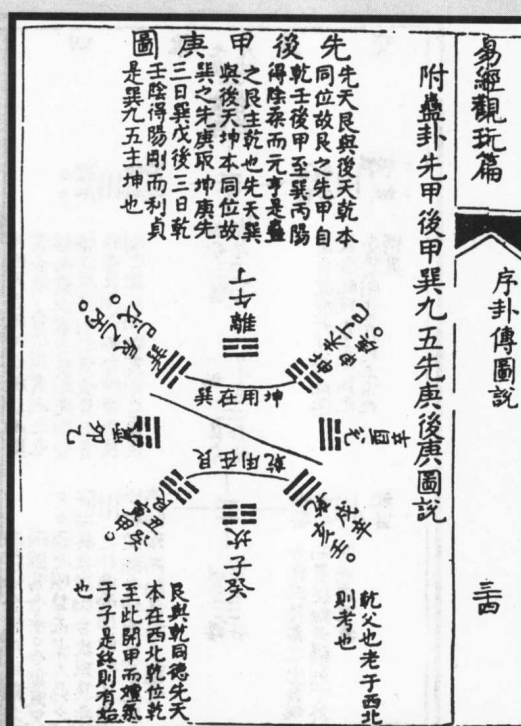 易經觀玩篇
序卦傳圖說
三四
附蠱卦先甲後甲巽九五先庚後庚圖說
先後甲庚圖
先天艮與後天乾本
同位故艮之先甲自
乾壬後甲至巽丙陽
得陰泰而元亨是蠱
之艮主乾也先天巽
與後天坤本同位故
巽之先庚取坤庚先
三日巽戊後三日乾
壬陰得陽剛而利貞
是巽九五主坤也
離午丁
坤用在巽
酉辛
震卯乙
乾用在艮
坎子癸
乾父也老于西北
則考也
艮與乾同德先天
本在西北乾位乾
至此開甲而氣
于子是終則有始
也